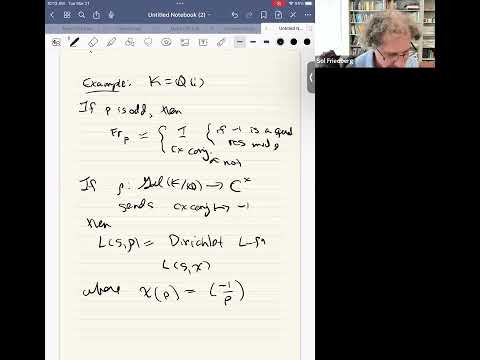 10:13 AM Tue Mar 21
94%
Untitled Notebook (2)
Sol Friedberg
Example: K = Q(i)
If p is odd, then
Fr_p = { I { if -1 is a quad
res mod p
cx conj. not
If ρ: Gal(K/Q) → C^x
sends cx conj ↦ -1
then
L(s,ρ) = Dirichlet L-fn
L(s,χ)
where χ(p) = (-1/p)